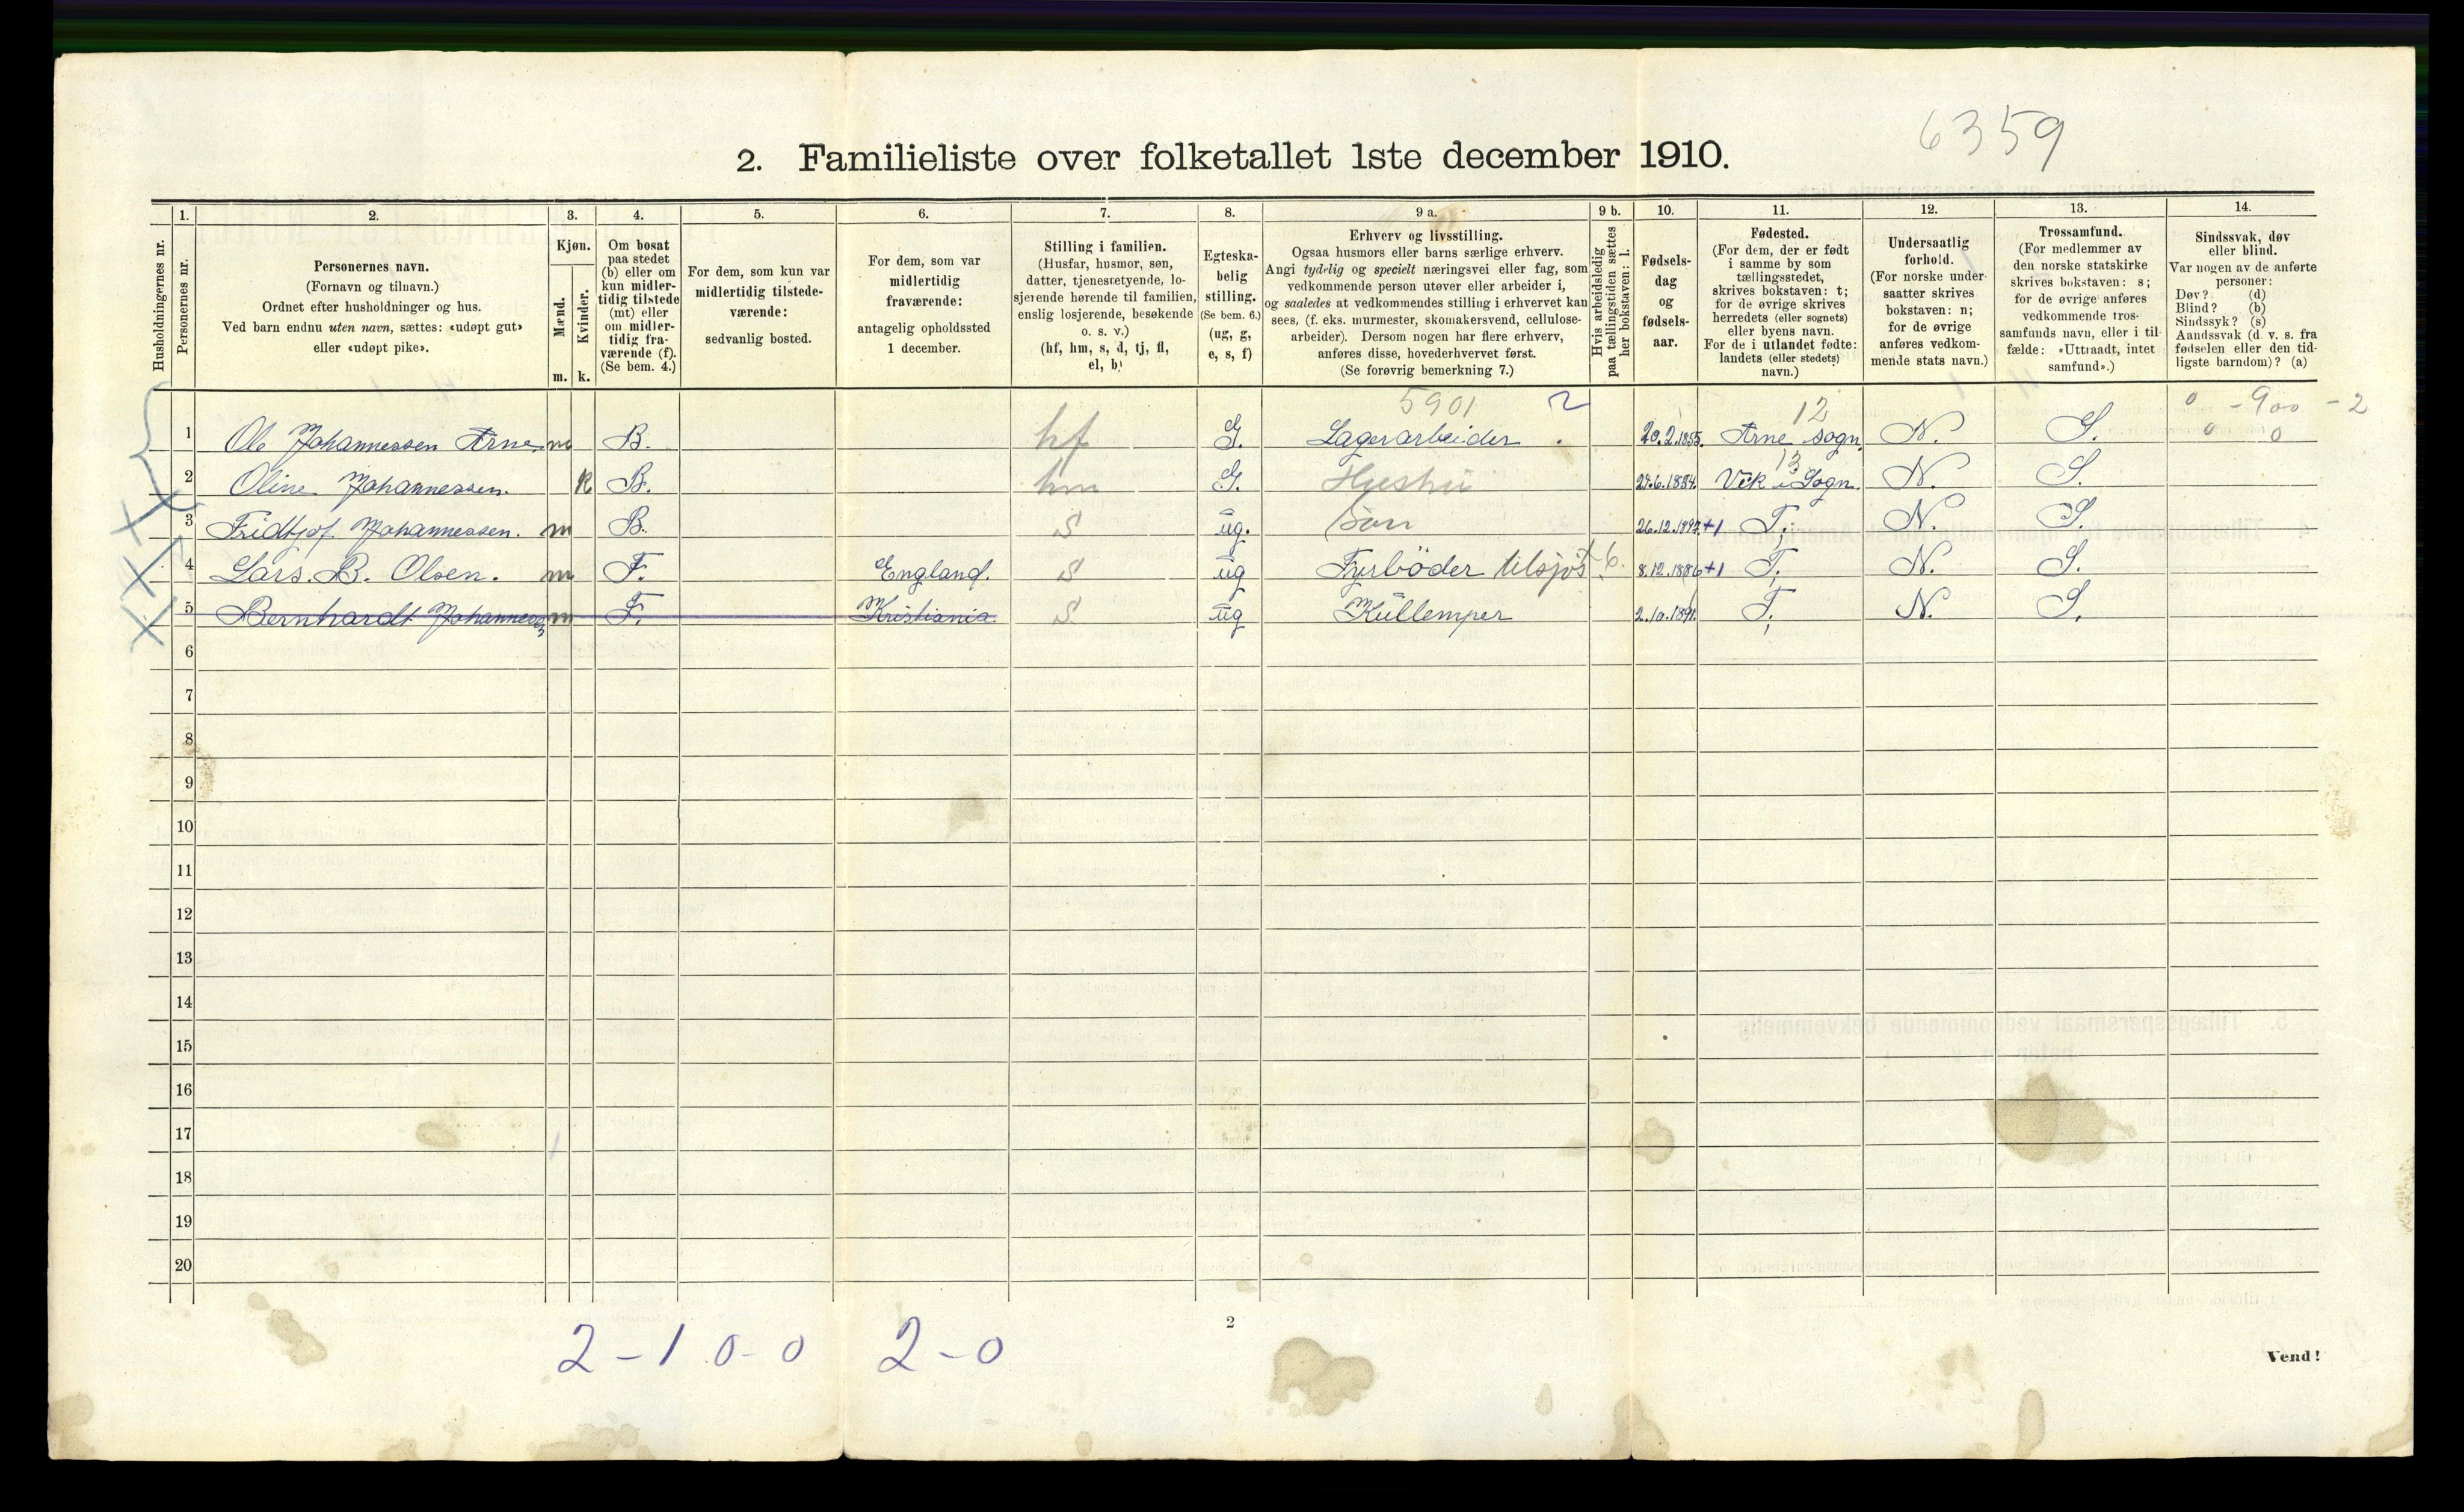 6359
2. Familieliste over folketallet 1ste december 1910.
Husholdningernes nr.
1. Personernes nr.
2. Personernes navn. (Fornavn og tilnavn.) Ordnet efter husholdninger og hus. Ved barn endnu uten navn, sættes: «udøpt gut» eller «udøpt pike».
3. Kjøn. Mænd. m. Kvinder. k.
4. Om bosat paa stedet (b) eller om kun midlertidig tilstede (mt) eller om midlertidig fraværende (f). (Se bem. 4.)
5. For dem, som kun var midlertidig tilstedeværende: sedvanlig bosted.
6. For dem, som var midlertidig fraværende: antagelig opholdssted 1 december.
7. Stilling i familien. (Husfar, husmor, søn, datter, tjenesretyende, losjerende hørende til familien, enslig losjerende, besøkende o. s. v.) (hf, hm, s, d, tj, fl, el, b)
8. Egteskabelig stilling. (Se bem. 6.) (ug, g, e, s, f)
9 a. Erhverv og livsstilling. Ogsaa husmors eller barns særlige erhverv. Angi tydelig og specielt næringsvei eller fag, som vedkommende person utøver eller arbeider i, og saaledes at vedkommendes stilling i erhvervet kan sees, (f. eks. murmester, skomakersvend, cellulosearbeider). Dersom nogen har flere erhverv, anføres disse, hovederhvervet først. (Se forøvrig bemerkning 7.)
9 b. Hvis arbeidsledig paa tællingstiden sættes her bokstaven: l.
10. Fødselsdag og fødselsaar.
11. Fødested. (For dem, der er født i samme by som tællingsstedet, skrives bokstaven: t; for de øvrige skrives herredets (eller sognets) eller byens navn. For de i utlandet fødte: landets (eller stedets) navn.)
12. Undersaatlig forhold. (For norske undersaatter skrives bokstaven: n; for de øvrige anføres vedkommende stats navn.)
13. Trossamfund. (For medlemmer av den norske statskirke skrives bokstaven: s; for de øvrige anføres vedkommende trossamfunds navn, eller i tilfælde: «Uttraadt, intet samfund».)
14. Sindssvak, døv eller blind. Var nogen av de anførte personer: Døv? (d) Blind? (b) Sindssyk? (s) Aandssvak (d. v. s. fra fødselen eller den tidligste barndom)? (a)
5901 2 12 0 - 900 - 2
1 Ole Johannessen Arne. m B. hf G. Lagerarbeider. 20.2.1855. Arne sogn. N. S. 0 0
13
2 Oline Johannessen. K B. hm G. Hustru 27.6.1854. Vik i Sogn. N. S.
3 Fridtjof Johannessen. m B. S ug. Søn 26.12.1897 +1 T; N. S.
4 Lars. B. Olsen. m F. England. S ug Fyrbøder tilsjøs 6. 8.12.1886 +1 T; N. S.
5 Bernhardt Johannessen m F. Kristiania. S ug Kullemper 2.10.1891. T; N. S.
6
7
8
9
10
11
12
13
14
15
16
17
18
19
20
2
2 - 1 0 - 0 2 - 0
Vend!